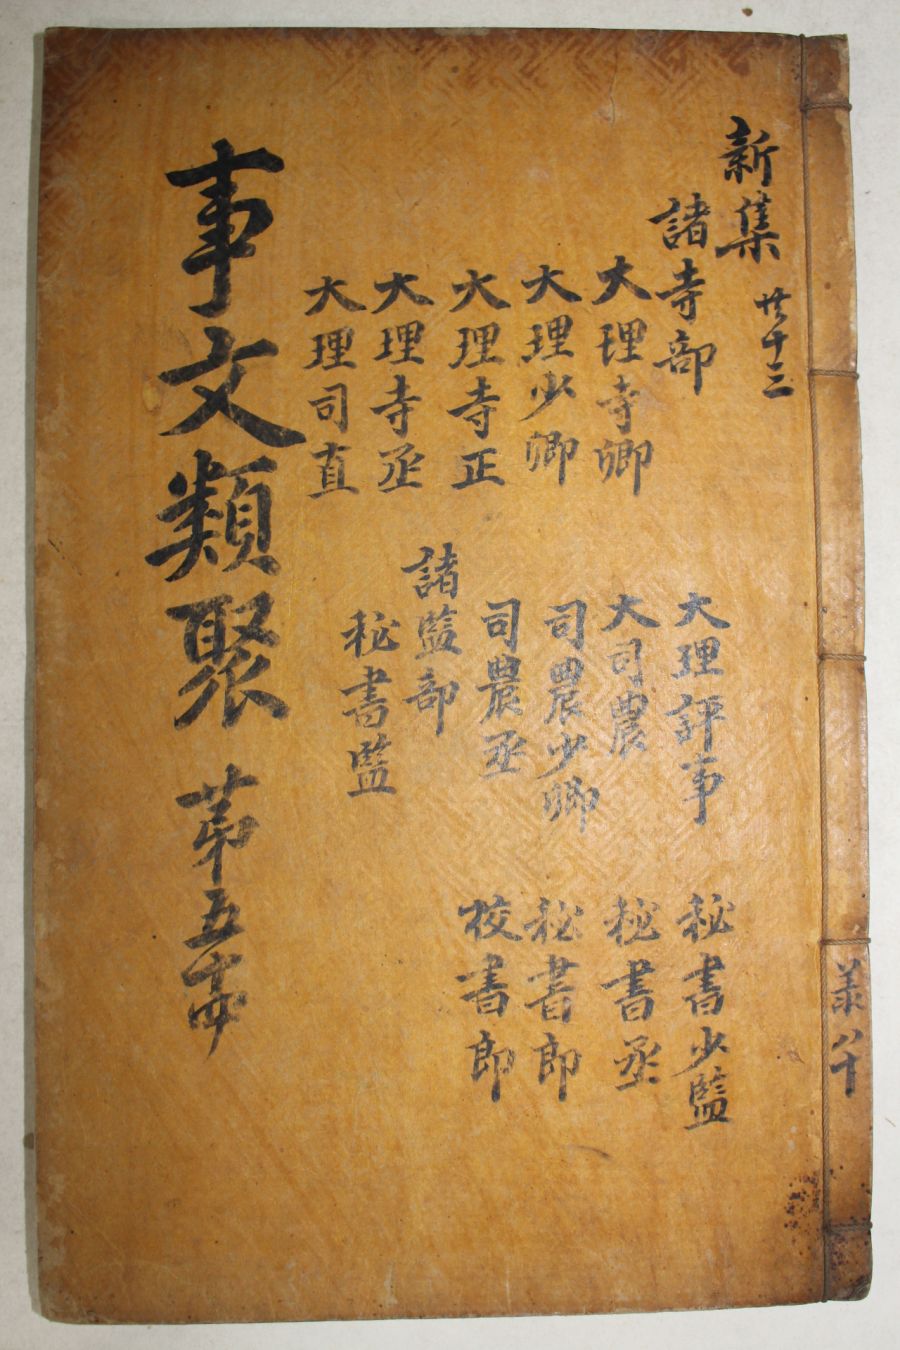 新集 廿十三
諸寺部
大理寺卿
大理少卿
大理寺正
大理寺丞
大理司直
大理評事
大司農
司農少卿
司農丞
諸監部
秘書監
秘書少監
秘書丞
秘書郎
校書郎
事文類聚 苐五
八十